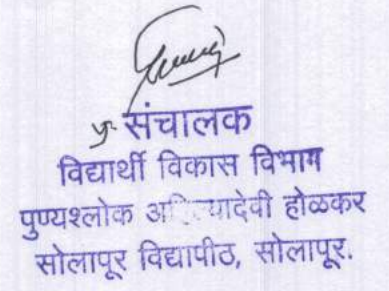 संचालक
विद्यार्थी विकास विभाग
पुण्यश्लोक होळकर
सोलापूर विद्यापीठ, सोलापूर.